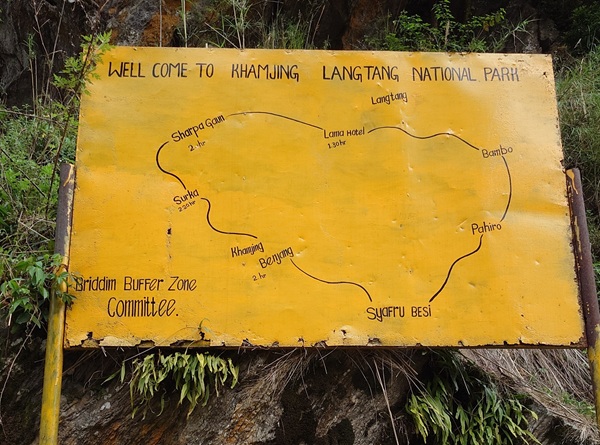 WELL COME TO KHAMJING LANGTANG NATIONAL PARK
Langtang
Sharpa Gaun
2.hr
Lama Hotel
1.30hr
Bambo
Surka
2.20hr
Pahiro
Khamjing
Benjang
2.hr
Syafru Besi
Briddim Buffer Zone
Committee.